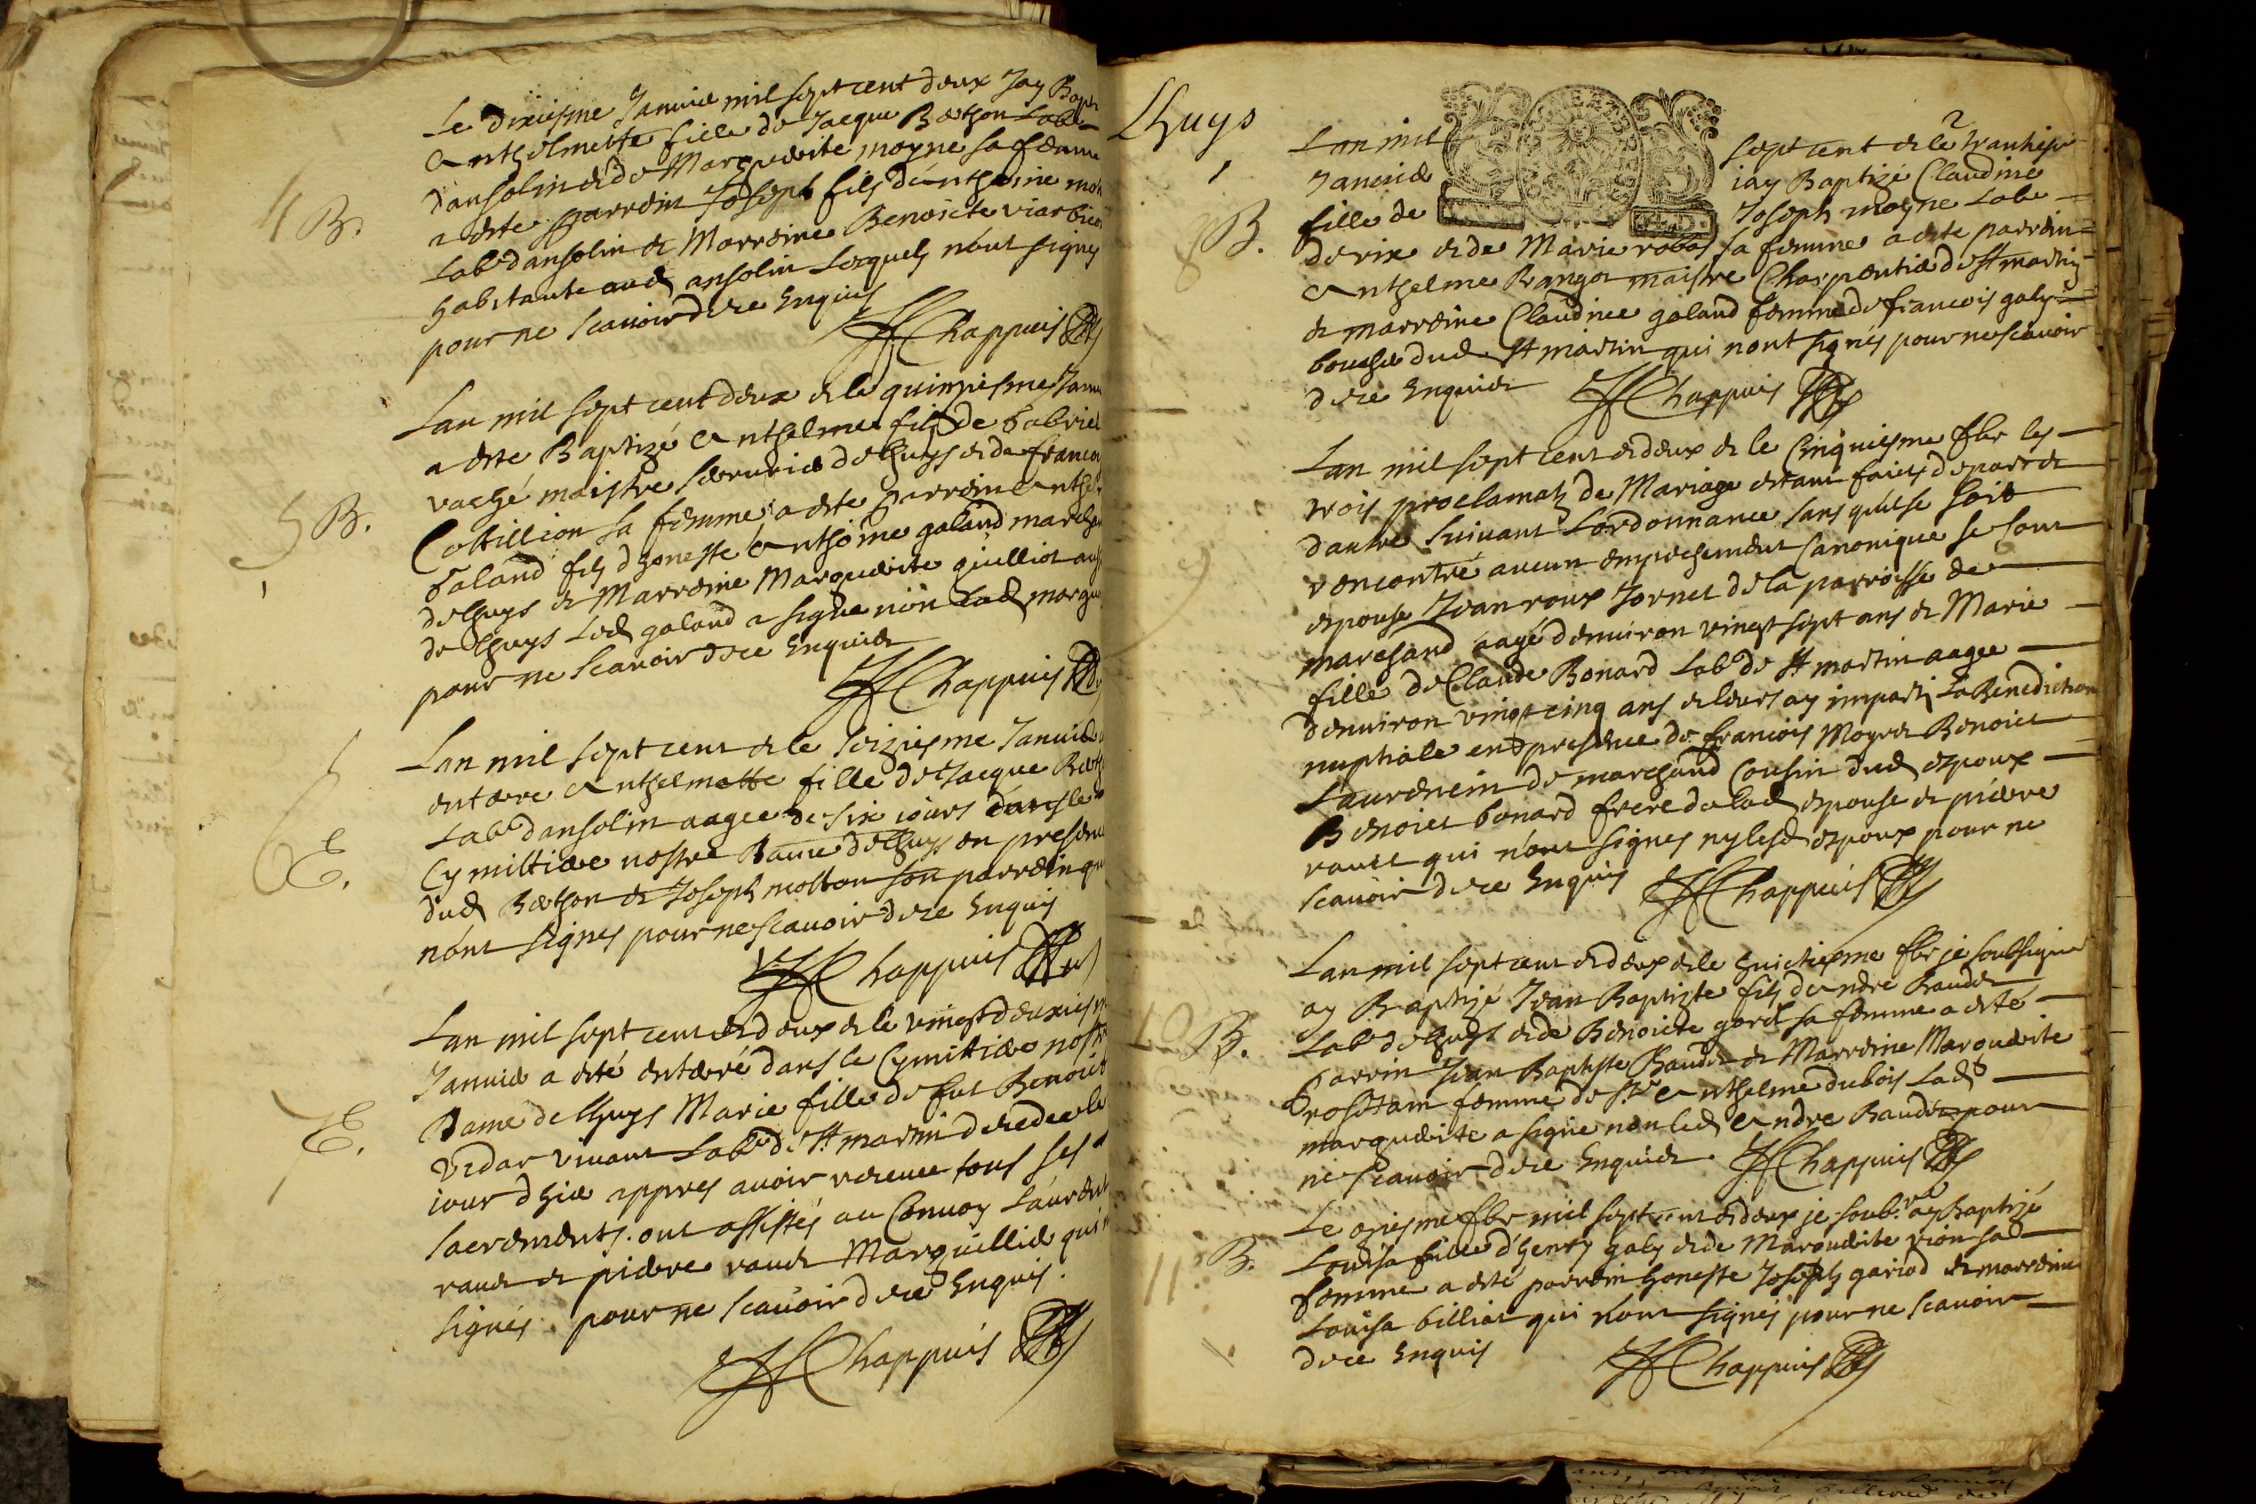 Le dixiesme Januier mil sept cent deux Jay Bapt
Anthelmette fille de Jacque Berthon Labr
dansolin et de Marguerite moyne sa femme
a este parrein Joseph fils d'enthoine
Labr dansolin et Marreine Benoicte
habitante aud ansolin Lesquels n'ont signes
pour ne scauoir de ce Enquis
Chappuis
4 B.
Lan mil sept cent deux et le quinziesme Janui
a este Baptizé Anthelme fils de Gabriel
vaché maistre serrurier de Lhuys et de francoi
Costillion sa femme a este parrein Anthel
Galand fils d'honeste Anthoine galand marcha
de Lhuys et Marreine Marguerite guilliot
de Lhuys Led galand a signe non Lad margu
pour ne scauoir de ce Enquise
Chappuis
5 B.
Lan mil sept cent et le seiziesme Januier
enterre Anthelmette fille de Jacque Berth
Labr dansolin aagee de six iours dans le
Cymittiere nostre Dame de Lhuys en presence
dud Berthon et Joseph son parrein qui
n'ont signes pour ne scauoir de ce Enquis
Chappuis
6 E.
Lan mil sept cent et deux et le vingt deuxiesme
Januier a esté enterré dans le Cymittiere nostre
Dame de Lhuys Marie fille de feu Benoict
vidar viuant Labr de St martin decedee le
iour d'hier appres auoir receue tous ses
sacrements. ont assistés au Conuoy Laurent
raude et pierre raude Marguillier qui
signés. pour ne scauoir de ce Enquis.
Chappuis
7 E.
Lhuys
Lan mil sept cent et le
Januier iay Baptizé Claudine
fille de Joseph moyne Labr
de rix et de Marie sa femme a este parrein
Anthelme maistre Charpentier de St martin
et marreine Claudine galand femme de francois galy
boucher dud St martin qui n'ont signés pour ne scauoir
de ce Enquise
Chappuis
8 B.
Lan mil sept cent et deux et le Cinquiesme fbr les
trois proclamats de Mariage estant faicts de part et
dautre suiuant Lordonnance sans quil se soit
rencontré aucun empeschement Canonique se sont
espouse Jean roux Jornet de la parroisse de
marchand aagé denuiron vingt sept ans et Marie
fille de Claude Bonard Labr de St martin aagee
denuiron vingt cinq ans et leurs ay imparti La Benediction
nuptiale en presence de francois Moyne Benoict
Laurencin de marchand Cousin dud espoux
Benoict bonard frere de lad espouse et pierre
raude qui n'ont signes ny lesd espoux pour ne
scauoir de ce Enquis
Chappuis
9
Lan mil sept cent et deux et le huictiesme fbr je soubsigne
ay Baptizé Jean Baptizte fils dendre Baudet
Labr de Lhuys et de Benoicte sa femme a esté
Parrin Jean Baptiste Baudet et Marreine Marguerite
femme de Sr Anthelme dubois Lad
marguerite a signe non led Andre Baudet pour
ne scauoir de ce Enquise.
Chappuis
10 B.
Le onziesme fbr mil sept cent et deux je soubne ay Baptizé
Louisa fille d'henry galy et de Marguerite sad
femme a esté parrein honeste Joseph gariod et marreine
Louisa billiat qui n'ont signés pour ne scauoir
de ce Enquis
Chappuis
11 B.